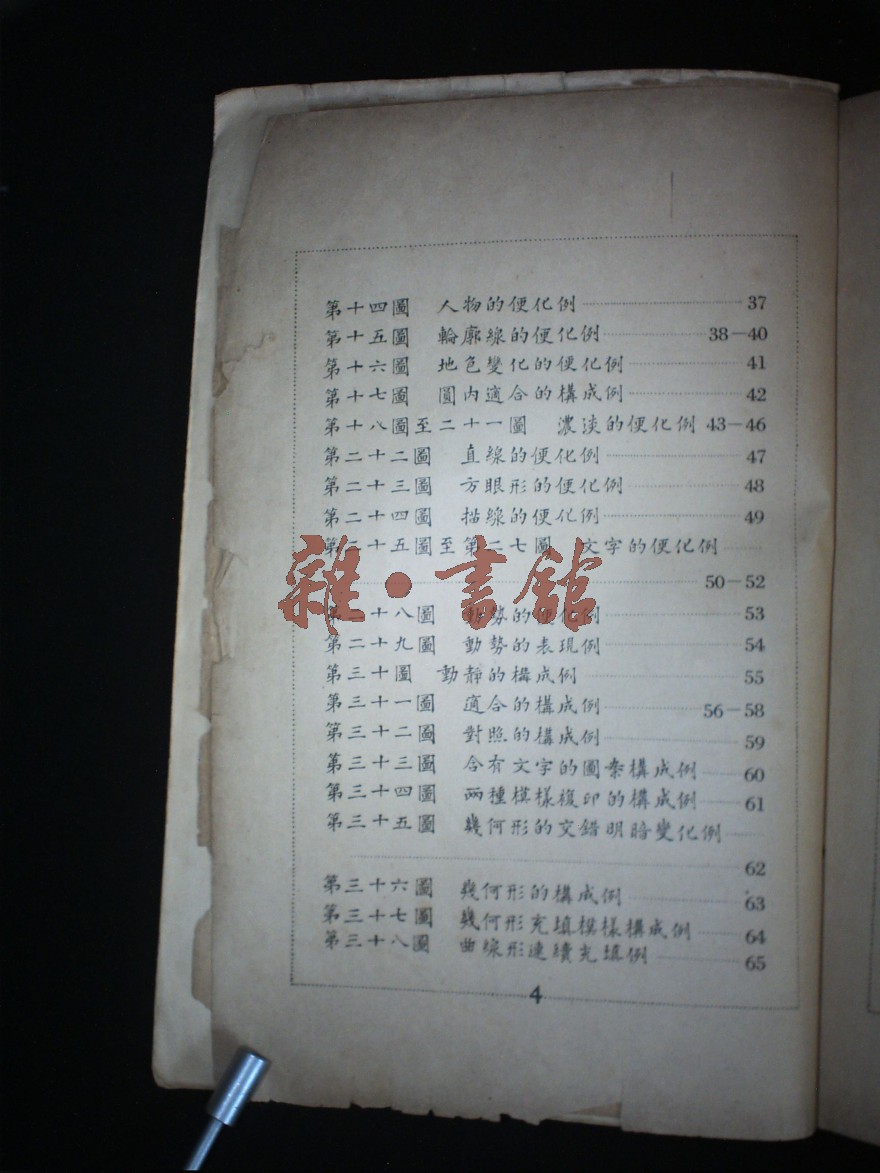 第十四圖 人物的便化例 37
第十五圖 輪廓線的便化例 38—40
第十六圖 地色變化的便化例 41
第十七圖 圓內適合的構成例 42
第十八圖至二十一圖 濃淡的便化例 43—46
第二十二圖 直線的便化例 47
第二十三圖 方眼形的便化例 48
第二十四圖 描線的便化例 49
第二十五圖至第二七圖 文字的便化例
50—52
第二十八圖 動勢的便化例 53
第二十九圖 動勢的表現例 54
第三十圖 動靜的構成例 55
第三十一圖 適合的構成例 56—58
第三十二圖 對照的構成例 59
第三十三圖 含有文字的圖案構成例 60
第三十四圖 兩種模樣複印的構成例 61
第三十五圖 幾何形的交錯明暗變化例
62
第三十六圖 幾何形的構成例 63
第三十七圖 幾何形充填模樣構成例 64
第三十八圖 曲線形連續充填例 65
4
雜·書館